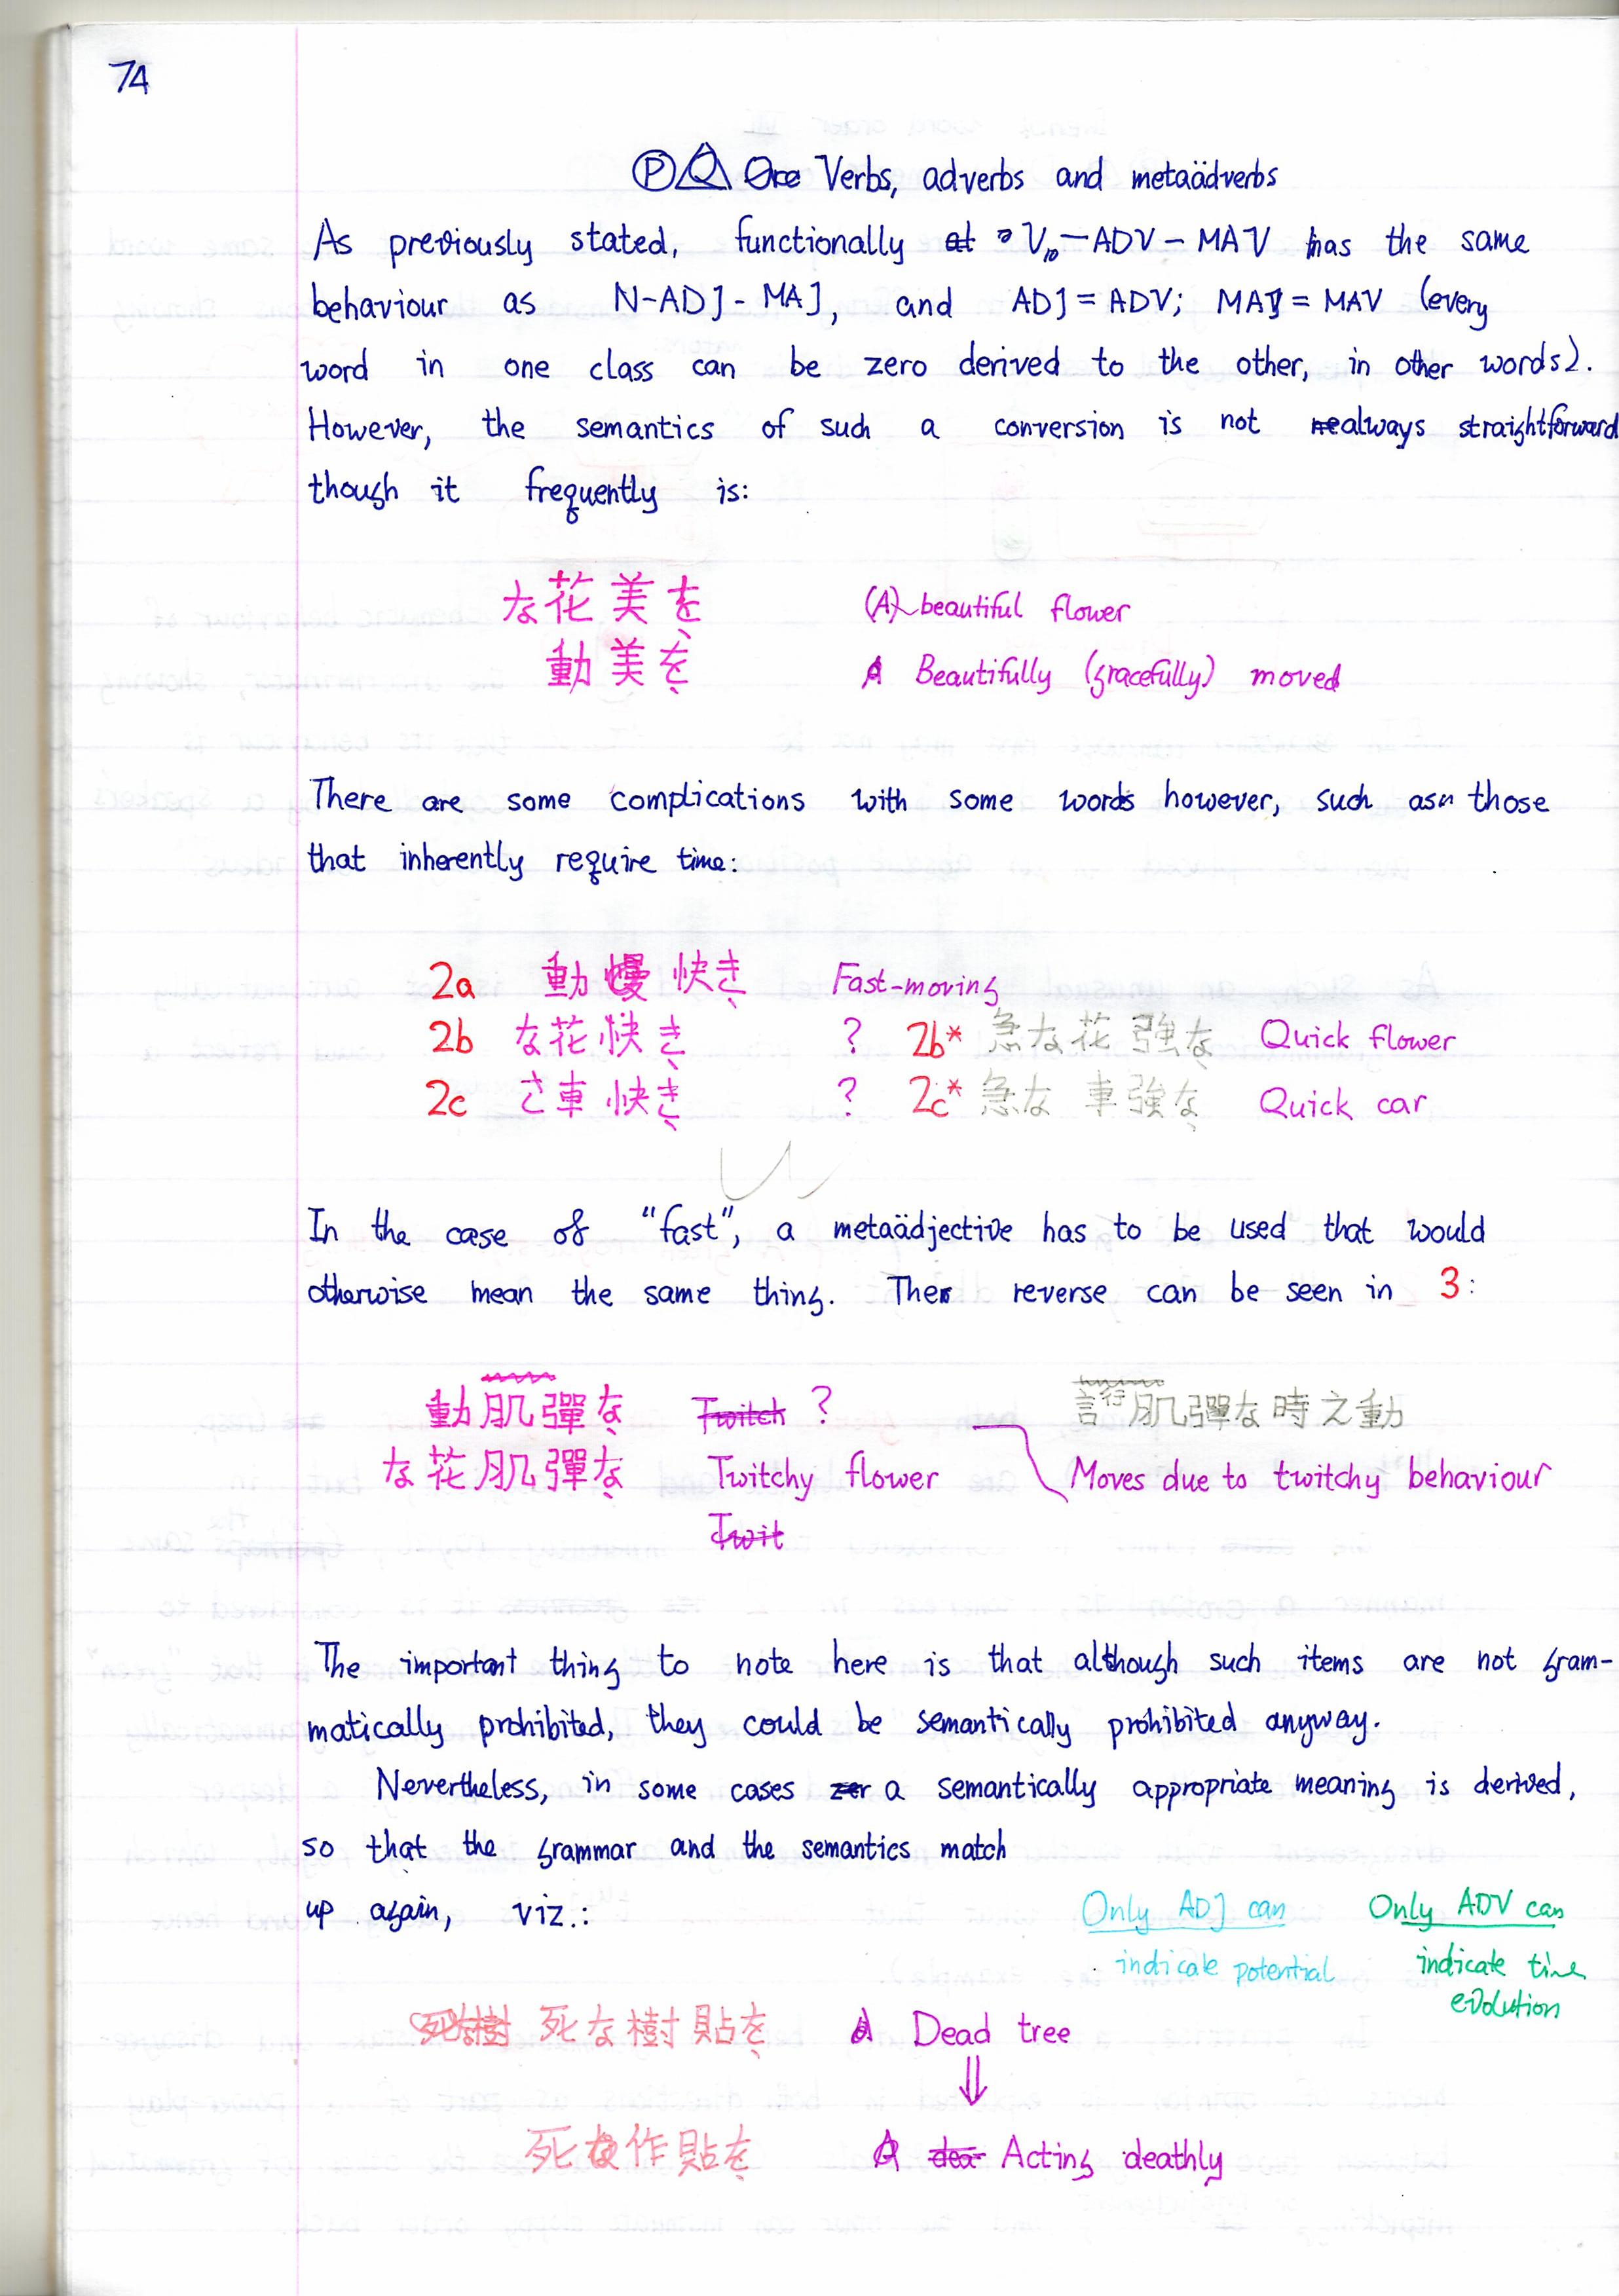 74
Ⓟ Q Verbs, adverbs and metaädverbs
As previously stated, functionally V_p-ADV-MAV has the same
behaviour as N-ADJ-MAJ, and ADJ = ADV; MAJ = MAV (every
word in one class can be zero derived to the other, in other words).
However, the semantics of such a conversion is not always straightforward
though it frequently is:
な花美を、 (A) beautiful flower
動美を、 Beautifully (gracefully) moved
There are some complications with some words however, such as those
that inherently require time:
2a 動慢快き、 Fast-moving
2b な花快き、 ? 2b* 急な花強な、 Quick flower
2c さ車快き、 ? 2c* 急な車強な、 Quick car
In the case of "fast", a metaädjective has to be used that would
otherwise mean the same thing. The reverse can be seen in 3:
動肌彈な、 Twitch ? 肌彈な時之動
な花肌彈な、 Twitchy flower Moves due to twitchy behaviour
Twit
The important thing to note here is that although such items are not gram-
matically prohibited, they could be semantically prohibited anyway.
Nevertheless, in some cases a semantically appropriate meaning is derived,
so that the grammar and the semantics match
up again, viz.: Only ADJ can Only ADV can
indicate potential indicate time
evolution
死な樹貼を、 Dead tree
⇓
死な作貼を、 Acting deathly